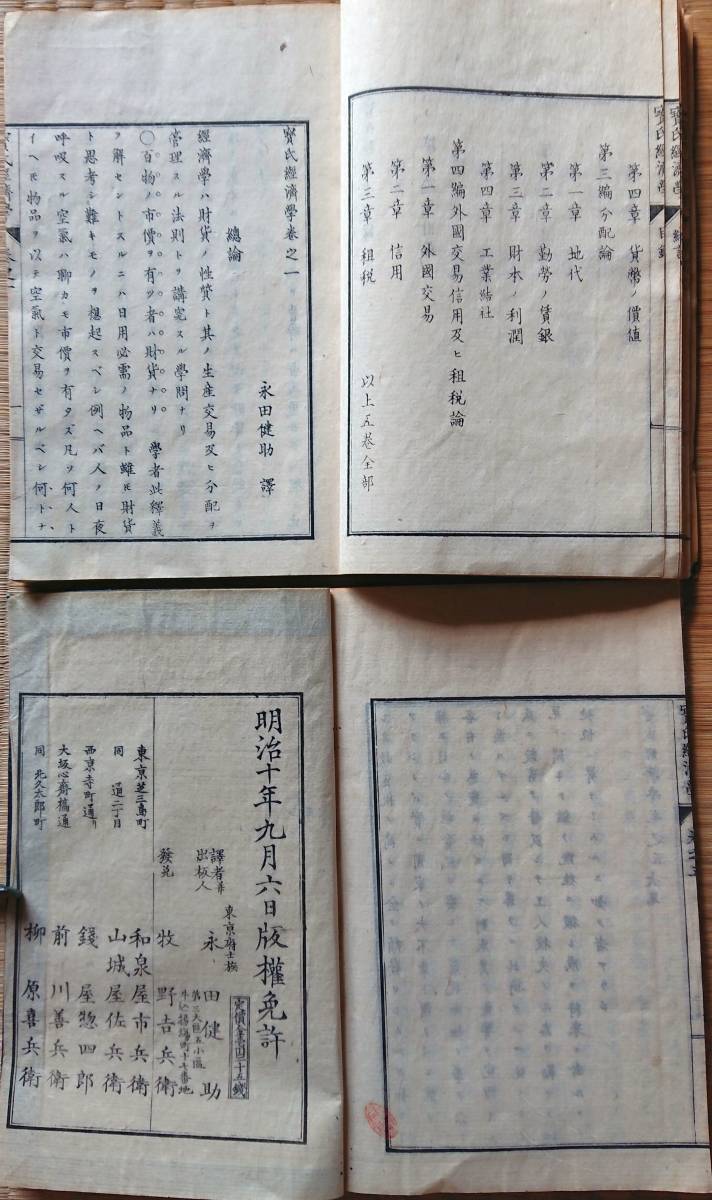 寳氏經濟學
目錄
第四章 貨幣ノ價値
第三編分配論
第一章 地代
第二章 勤勞ノ賃銀
第三章 財本ノ利潤
第四章 工業結社
第四編外國交易信用及ヒ租税論
第一章 外國交易
第二章 信用
第三章 租税
以上五卷全部
寳氏經濟學卷之一
永田健助 譯
總論
經濟學ハ財貨ノ性質ト其ノ生産交易及ヒ分配ヲ
管理スル法則トヲ講究スル學問ナリ
〇百物ノ市價ヲ有ツ者ハ財貨ナリ 學者此釋義
ヲ解セントスルニハ日用必需ノ物品ト雖モ財貨
ト思考シ難キモノヲ想起スベシ例ヘバ人ノ日夜
呼吸スル空氣ハ聊カモ市價ヲ有タズ凡ソ何人ト
イヘモ物品ヲ以テ空氣ト交易セザルベシ何トナ
寳氏經濟學
明治十年九月六日版權免許
譯者兼
出板人
東京府士族
永田健助
第三大區五小區
牛込揚場町十七番地
發兌
牧野吉兵衛
東京芝三島町
和泉屋市兵衛
同 通二丁目
山城屋佐兵衛
西京寺町通り
錢屋惣四郎
大坂心齋橋通
前川善兵衛
同 北久太郎町
柳原喜兵衛